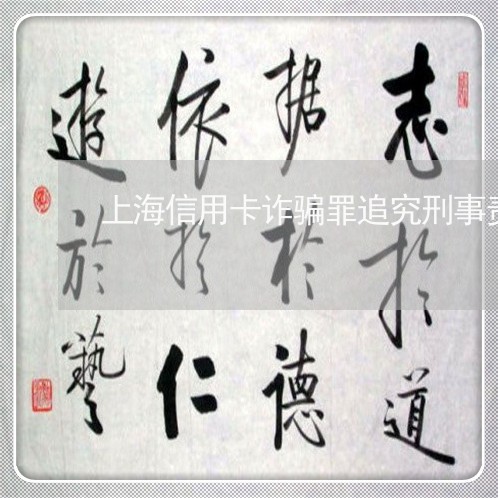 志於道
据於德
依於仁
遊於藝
上海信用卡诈骗罪追究刑事责